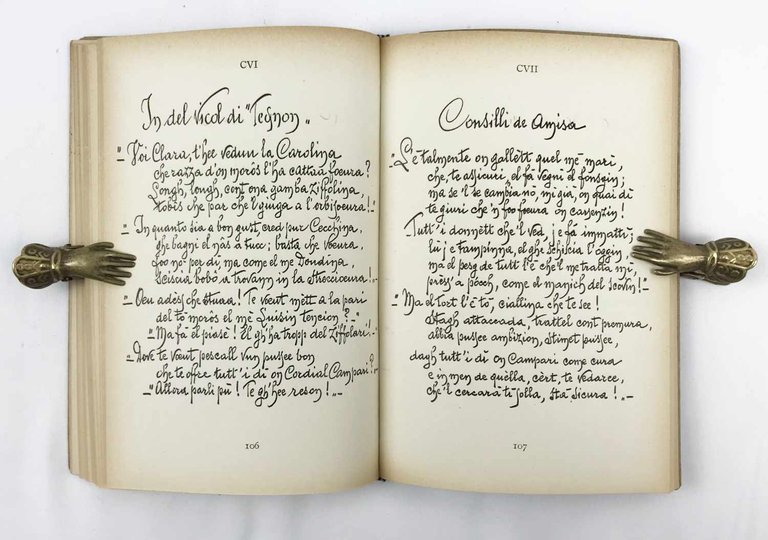 CVI
In del Vicol di "Tegnon"
_"Vei Clara, t'hee veduu la Carolina
che razza d'on morôs l'ha cattàa foeura?
Longh, longh, cont ona gamba Ziffolina,
nobis che par che l'guiga a l'orbisoeura!"_
_"In quanto sia a bon gust cred pur Cecchina,
che bagni el nas a tucc; basta che voeura,
foo no' per dì, ma come el me Doudina,
Sciscia bobò a trovann in la streccioeura!_
_"Oeu adèss che stuàa! Te voeut mètt a la pari
del tò morôs el mè Luisin Tencion?"_
_"Ma fà el piasè! El gh'ha tropp del Ziffolari!_
_"Dove te voeut pescall vun pussee bon
che te offre tutt'i dì on Cordial Campari?_
_"Allora parli pù! Te gh'hee reson!"_
106
CVII
Consilli de Amisa
_"L'è talmente on gallètt quel mè marì,
che, t'assicuri, el fà vegnì el fonsgin;
ma se 'l se cambia nò, mi già, on quai dì
te giuri che 'n foo foeura on carsenzin!
Tutt'i donnètt che 'l ved je fà immattì
lù je tampinna, el ghe schiscia l'oggin,
ma el pesg de tutt l'è che 'l me tratta mì,
prèss'a pôcch, come el manich del scovin!"_
_"Ma el tort l'è tò, ciallina che te see!
Stagh attaccada, trattel cont premura,
abbia pussee ambizion, stimet pussee,
dagh tutt'i dì on Campari come cura
e in men de quèlla, cèrt, te vedaree,
che 'l cercarà tì solla, stà sicura!"_
107